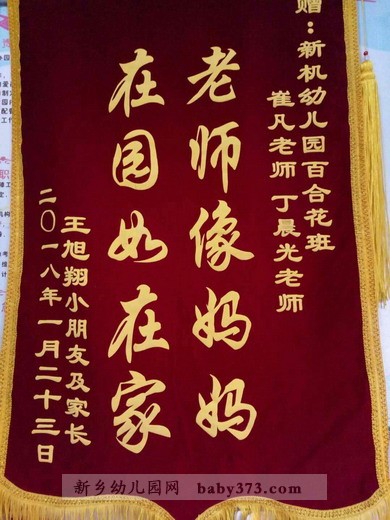 赠：新机幼儿园百合花班
崔凡老师 丁晨光老师
老师像妈妈
在园如在家
王旭翔小朋友及家长
二〇一八年一月二十三日
新乡幼儿园网 baby373.com